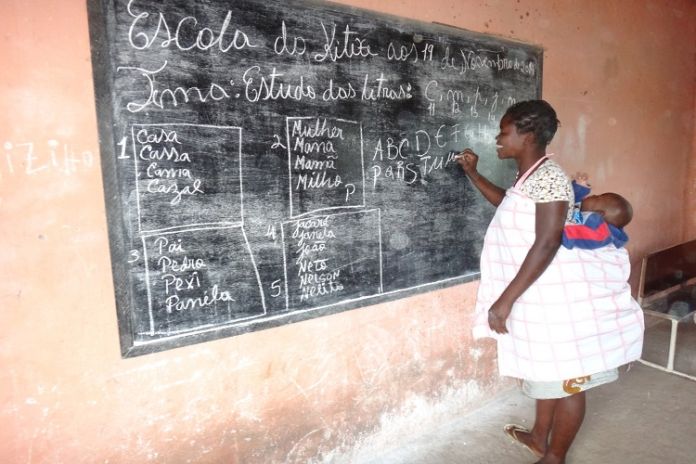 Escola do Kitixa aos 19 de Novembro de
Tema: Estudo das letras: C, m, p, j, n
1
Casa
Cassa
Cama
Cazal
2
Mulher
Maná
Mamã
Milho
P
ABCDEFGH
PQRSTUV
3
Pai
Pedro
Pexi
Panela
4
Jacaré
Janela
João
5
Neto
Nelson
Nelito